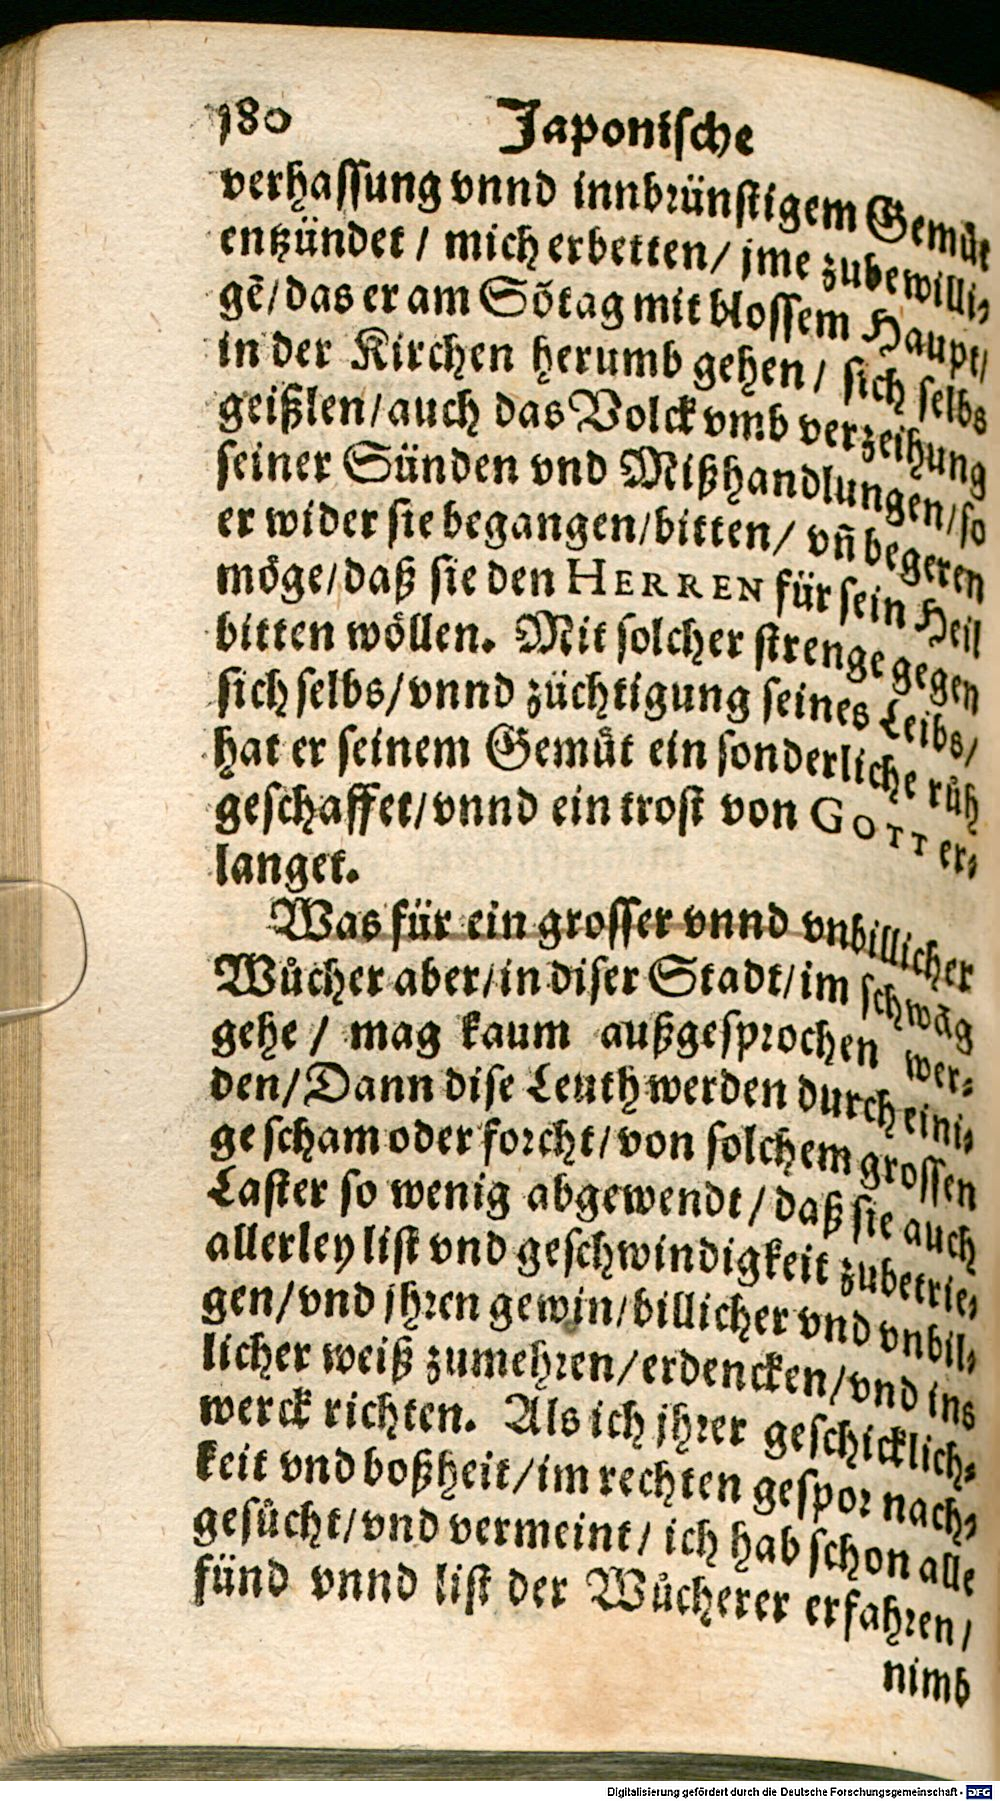 180 Japonische
verhassung vnnd innbrünstigem Gemuͤt
entzündet / mich erbetten / jme zubewilli-
gẽ / das er am Sõtag mit blossem Haupt /
in der Kirchen herumb gehen / sich selbs
geißlen / auch das Volck vmb verzeihung
seiner Sünden vnd Mißhandlungen / so
er wider sie begangen / bitten / vñ begeren
moͤge / daß sie den HERREN für sein Heil
bitten woͤllen. Mit solcher strenge gegen
sich selbs / vnnd züchtigung seines Leibs /
hat er seinem Gemuͤt ein sonderliche ruͤh
geschaffet / vnnd ein trost von GOTT er-
langet.
Was für ein grosser vnnd vnbillicher
Wuͦcher aber / in diser Stadt / im schwãg
gehe / mag kaum außgesprochen wer-
den / Dann dise Leuth werden durch eini-
ge scham oder forcht / von solchem grossen
Laster so wenig abgewendt / daß sie auch
allerley list vnd geschwindigkeit zubetrie-
gen / vnd jhren gewin / billicher vnd vnbil-
licher weiß zumehren / erdencken / vnd ins
werck richten. Als ich jhrer geschicklich-
keit vnd boßheit / im rechten gespor nach-
gesuͦcht / vnd vermeint / ich hab schon alle
fünd vnnd list der Wuͦcherer erfahren /
nimb
Digitalisierung gefördert durch die Deutsche Forschungsgemeinschaft - DFG